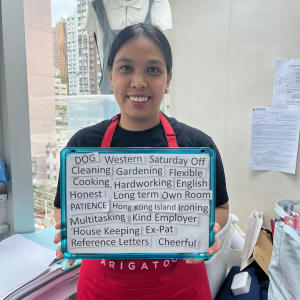 DOG Western Saturday Off
Cleaning Gardening Flexible
Cooking Hardworking English
Honest Long term Own Room
PATIENCE Hong Kong Island Ironing
Multitasking Kind Employer
House Keeping Ex-Pat
Reference Letters Cheerful
ARIGATO